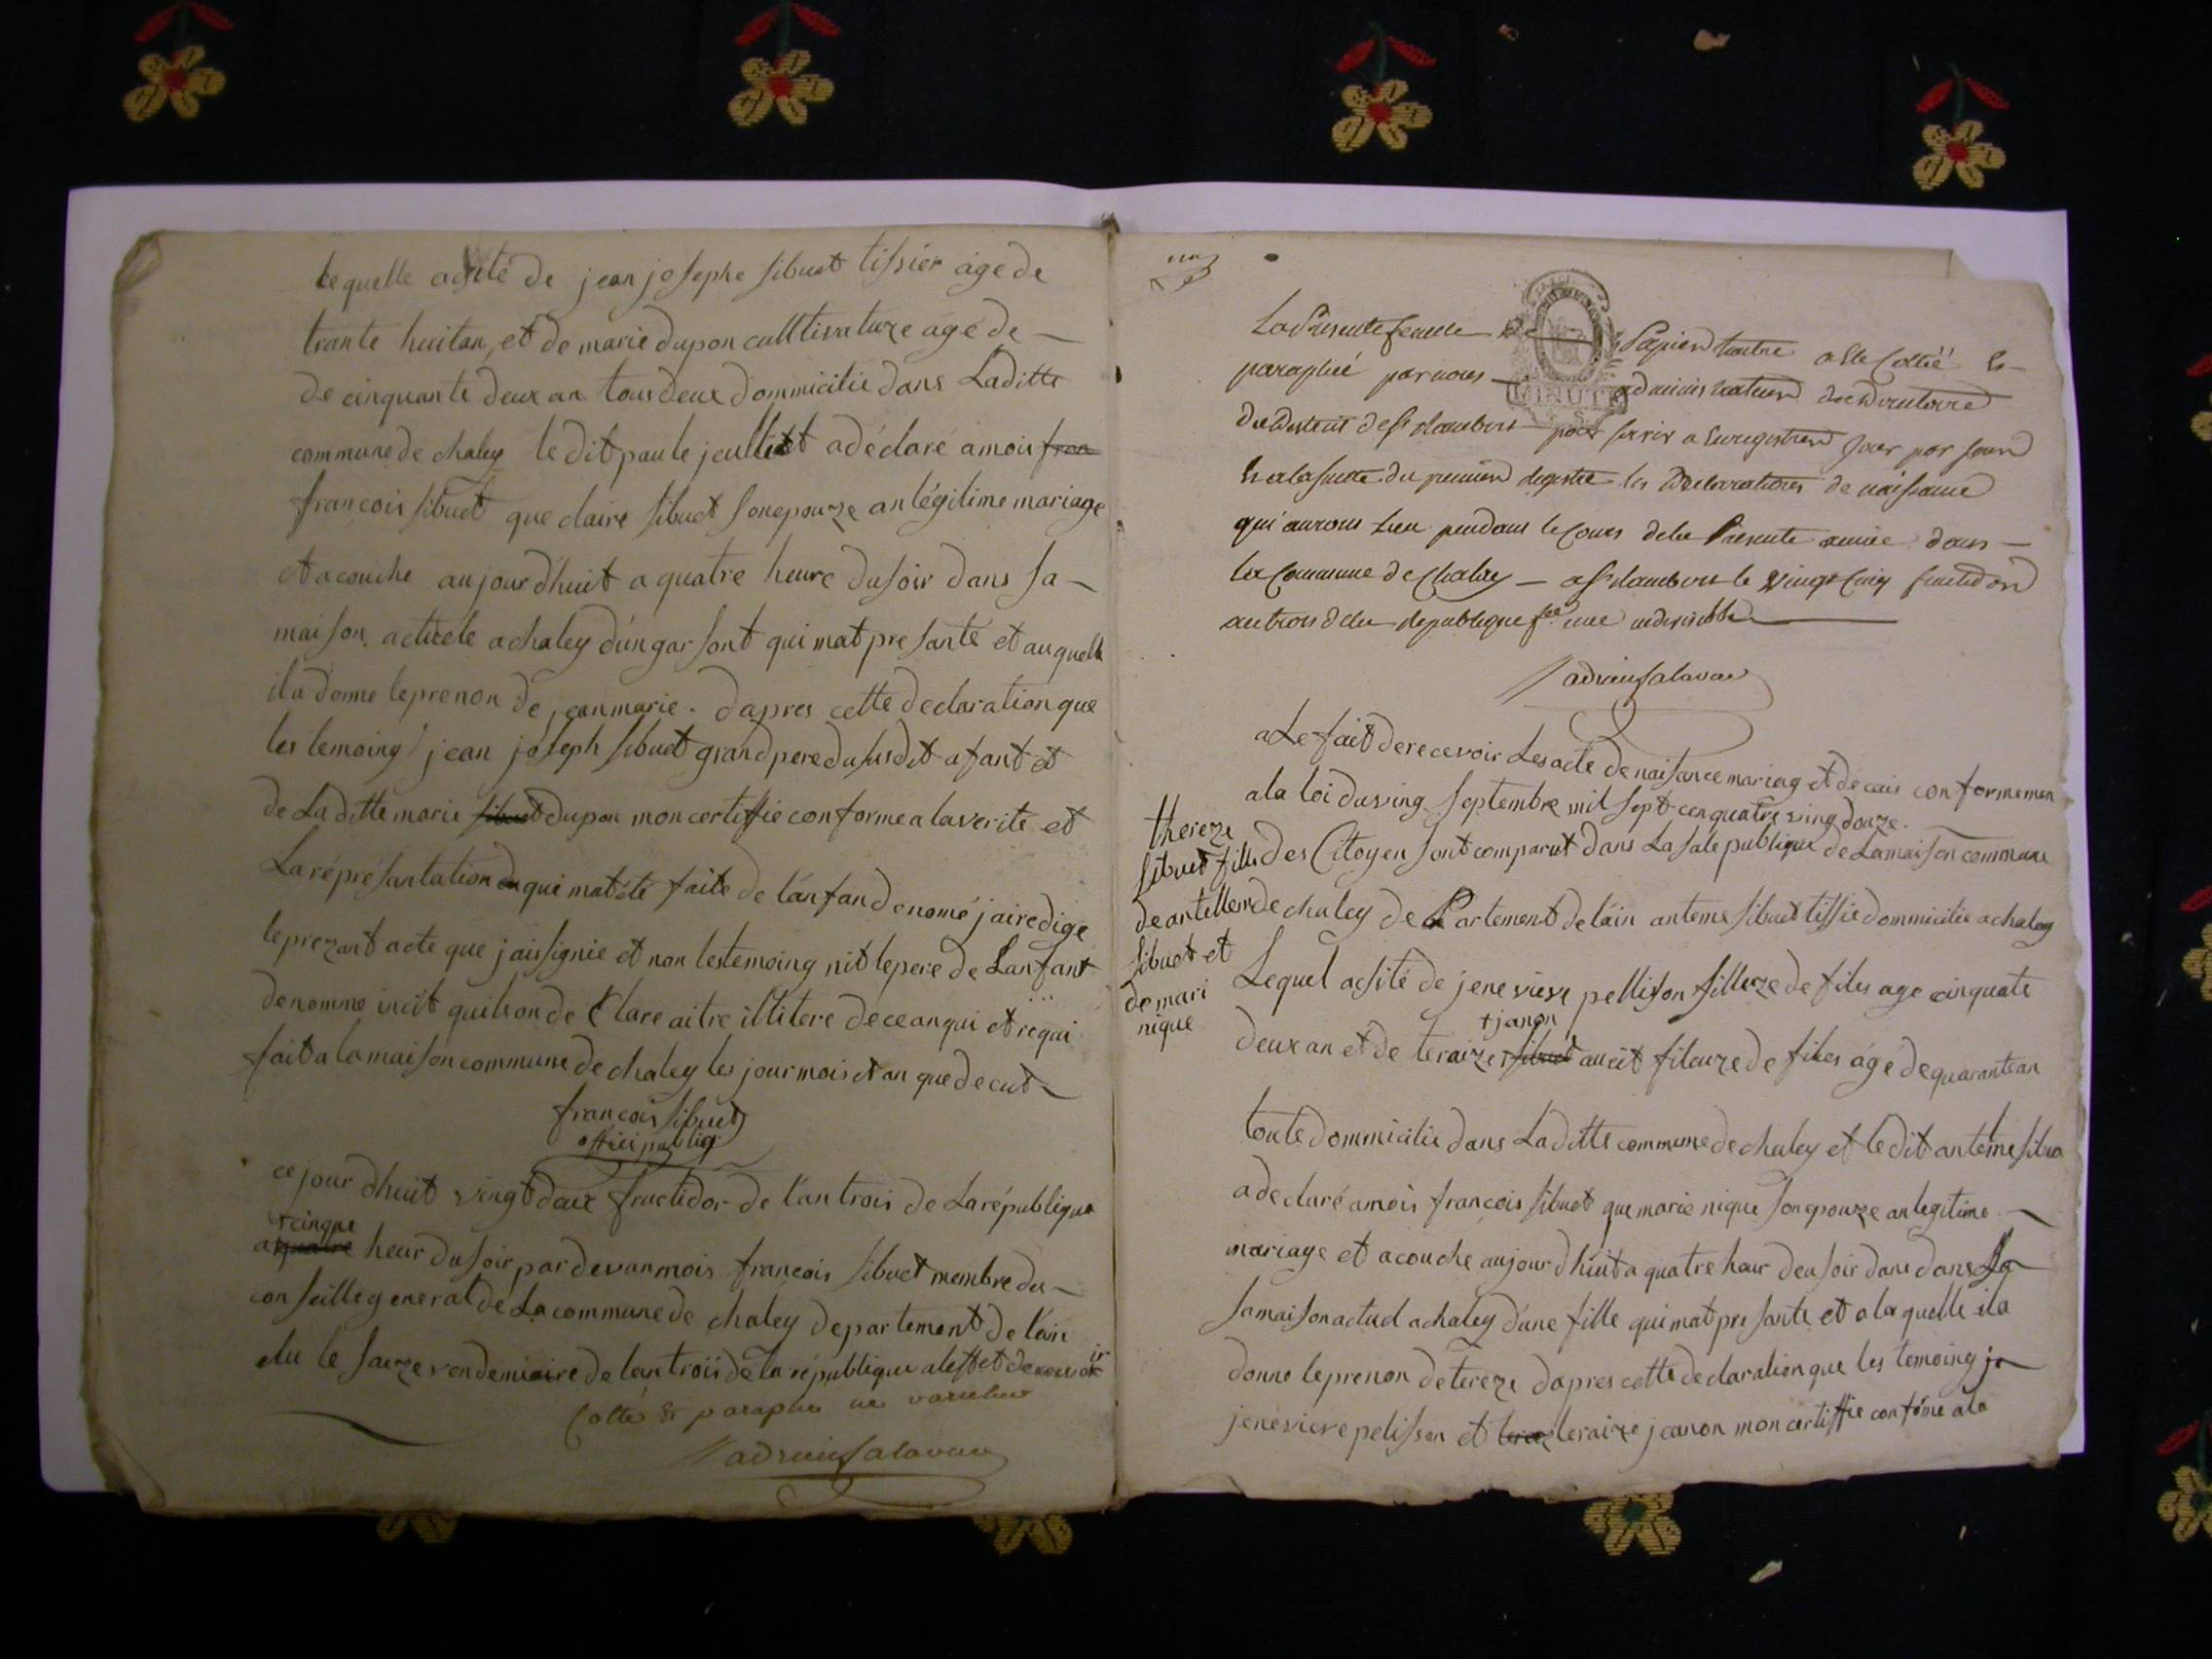 lequelle acisté de jean josephe sibuet tissier age de
trante huitan, et de marie dupon culltivature agé de
de cinquante deux an tous deux dommicilie dans Laditte
commune de chaley le dit paule jeulliet a déclaré amois fran
francois sibuet que claire sibuet son epouze an légitime mariage
et acouche aujourdhuit a quatre heure du soir dans sa
maison actuele a chaley d'un garsont qui mat presanté et auquelle
il a donne le prenon de jean marie. dapres cette declaration que
les temoing jean joseph sibuet grand pere du susdit afant et
de Laditte marie sibuet dupon mon certiffie conforme a la verite et
La réprésantation qui mat été faite de l'anfan denomé jai redige
le prezant acte que jai signie et non les temoing nit le pere de Lanfant
denomme insit quil son declare aitre illitere de ce anqui et requi
fait a la maison commune de chaley les jour mois et an que decut
francois sibuet
offici public
ce jourdhuit vingt deux fructidor de l'an trois de La république
+ cinque
a quatre heur du soir par devan mois francois sibuet membre du
conseille general de La commune de chaley departement de l'ain
elu le saeze vendemiaire de l'an trois de la république a leffet de recevoir
Cotté et paraphé ne varietur
adrien Salavan
La Présente feuille de Papier timbré a été Cottié et
paraphié par nous administrateur du directoire
MINUTE
du district de St Rambert pour servir a Enregistrer jour par jour
Et a la suitte du premier registre les Declarations de naissance
qui auront lieu pendant le Cours de la Présente année dans
la Commune de Chaley — a St Rambert le Vingt Cinq fructidor
an trois de la république fse une indivisible
adrien Salavan
a Le fait de recevoir Les acte de naisance mariag et decais conformemen
a la loi du ving septembre mil sept cen quatre ving douze.
thereze
sibuet fille
de antellem
sibuet et
de mari
nique
des Citoyen sont comparut dans La sale publique de La maison commune
de chaley de Partement de lain anteme sibuet tissie dommicilie a chaley
Lequel acisté de jenevieve pellison filleuze de files age cinquate
+ janon
deux an et de teraize + sibuet aucit fileuze de files agé de quarant an
toute dommicilie dans La ditte commune de chaley et le dit anteme sibua
a declaré amois francois sibuet que marie nique son epouze an legitime
mariage et acouche aujourdhuit a quatre heur deu soir dans dans sa
sa maison actuel a chaley d'une fille qui mat presante et a la quelle il a
donne le prenon de tereze dapres cette declaration que les temoing je
jenevieve pelisson et teraize jeanon mon certiffie confome a la